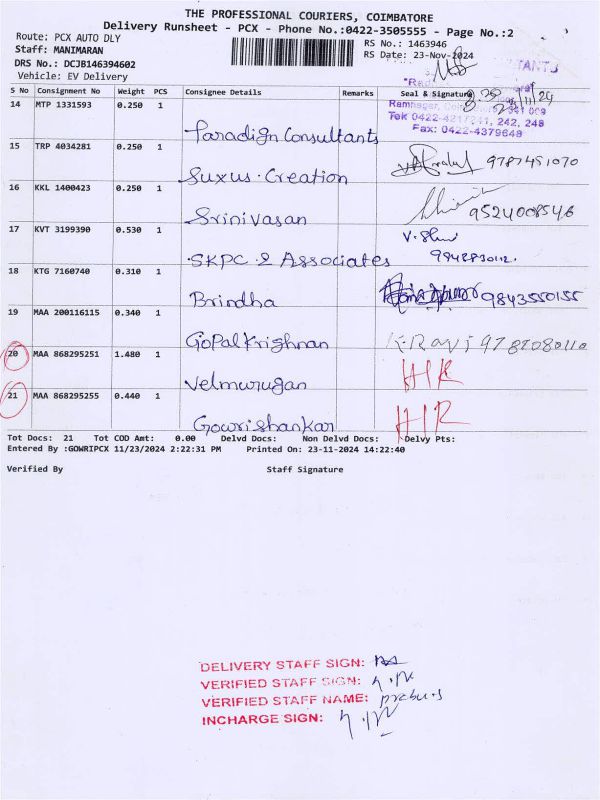 THE PROFESSIONAL COURIERS, COIMBATORE
Delivery Runsheet - PCX - Phone No.:0422-3505555 - Page No.:2
Route: PCX AUTO DLY
RS No.: 1463946
Staff: MANIMARAN
RS Date: 23-Nov-2024
DRS No.: DCJB146394602
Vehicle: EV Delivery
S No Consignment No Weight PCS Consignee Details Remarks Seal & Signature
14 MTP 1331593 0.250 1 Paradign Consultants
Tel: 0422-4217241, 242, 248
Fax: 0422-4379648
15 TRP 4034281 0.250 1 Suxus Creation 9787451070
16 KKL 1400423 0.250 1 Srinivasan 9524008546
17 KVT 3199390 0.530 1 SKPC & Associates
18 KTG 7160740 0.310 1 Brindha 9843550155
19 MAA 200116115 0.340 1 Gopalkrishnan K. Ravi 9789080110
20 MAA 868295251 1.480 1 Velmurugan H/R
21 MAA 868295255 0.440 1 Gowrishankar H/R
Tot Docs: 21 Tot COD Amt: 0.00 Delvd Docs: Non Delvd Docs: Delvy Pts:
Entered By :GOWRIPCX 11/23/2024 2:22:31 PM Printed On: 23-11-2024 14:22:40
Verified By Staff Signature
DELIVERY STAFF SIGN:
VERIFIED STAFF SIGN:
VERIFIED STAFF NAME:
INCHARGE SIGN: